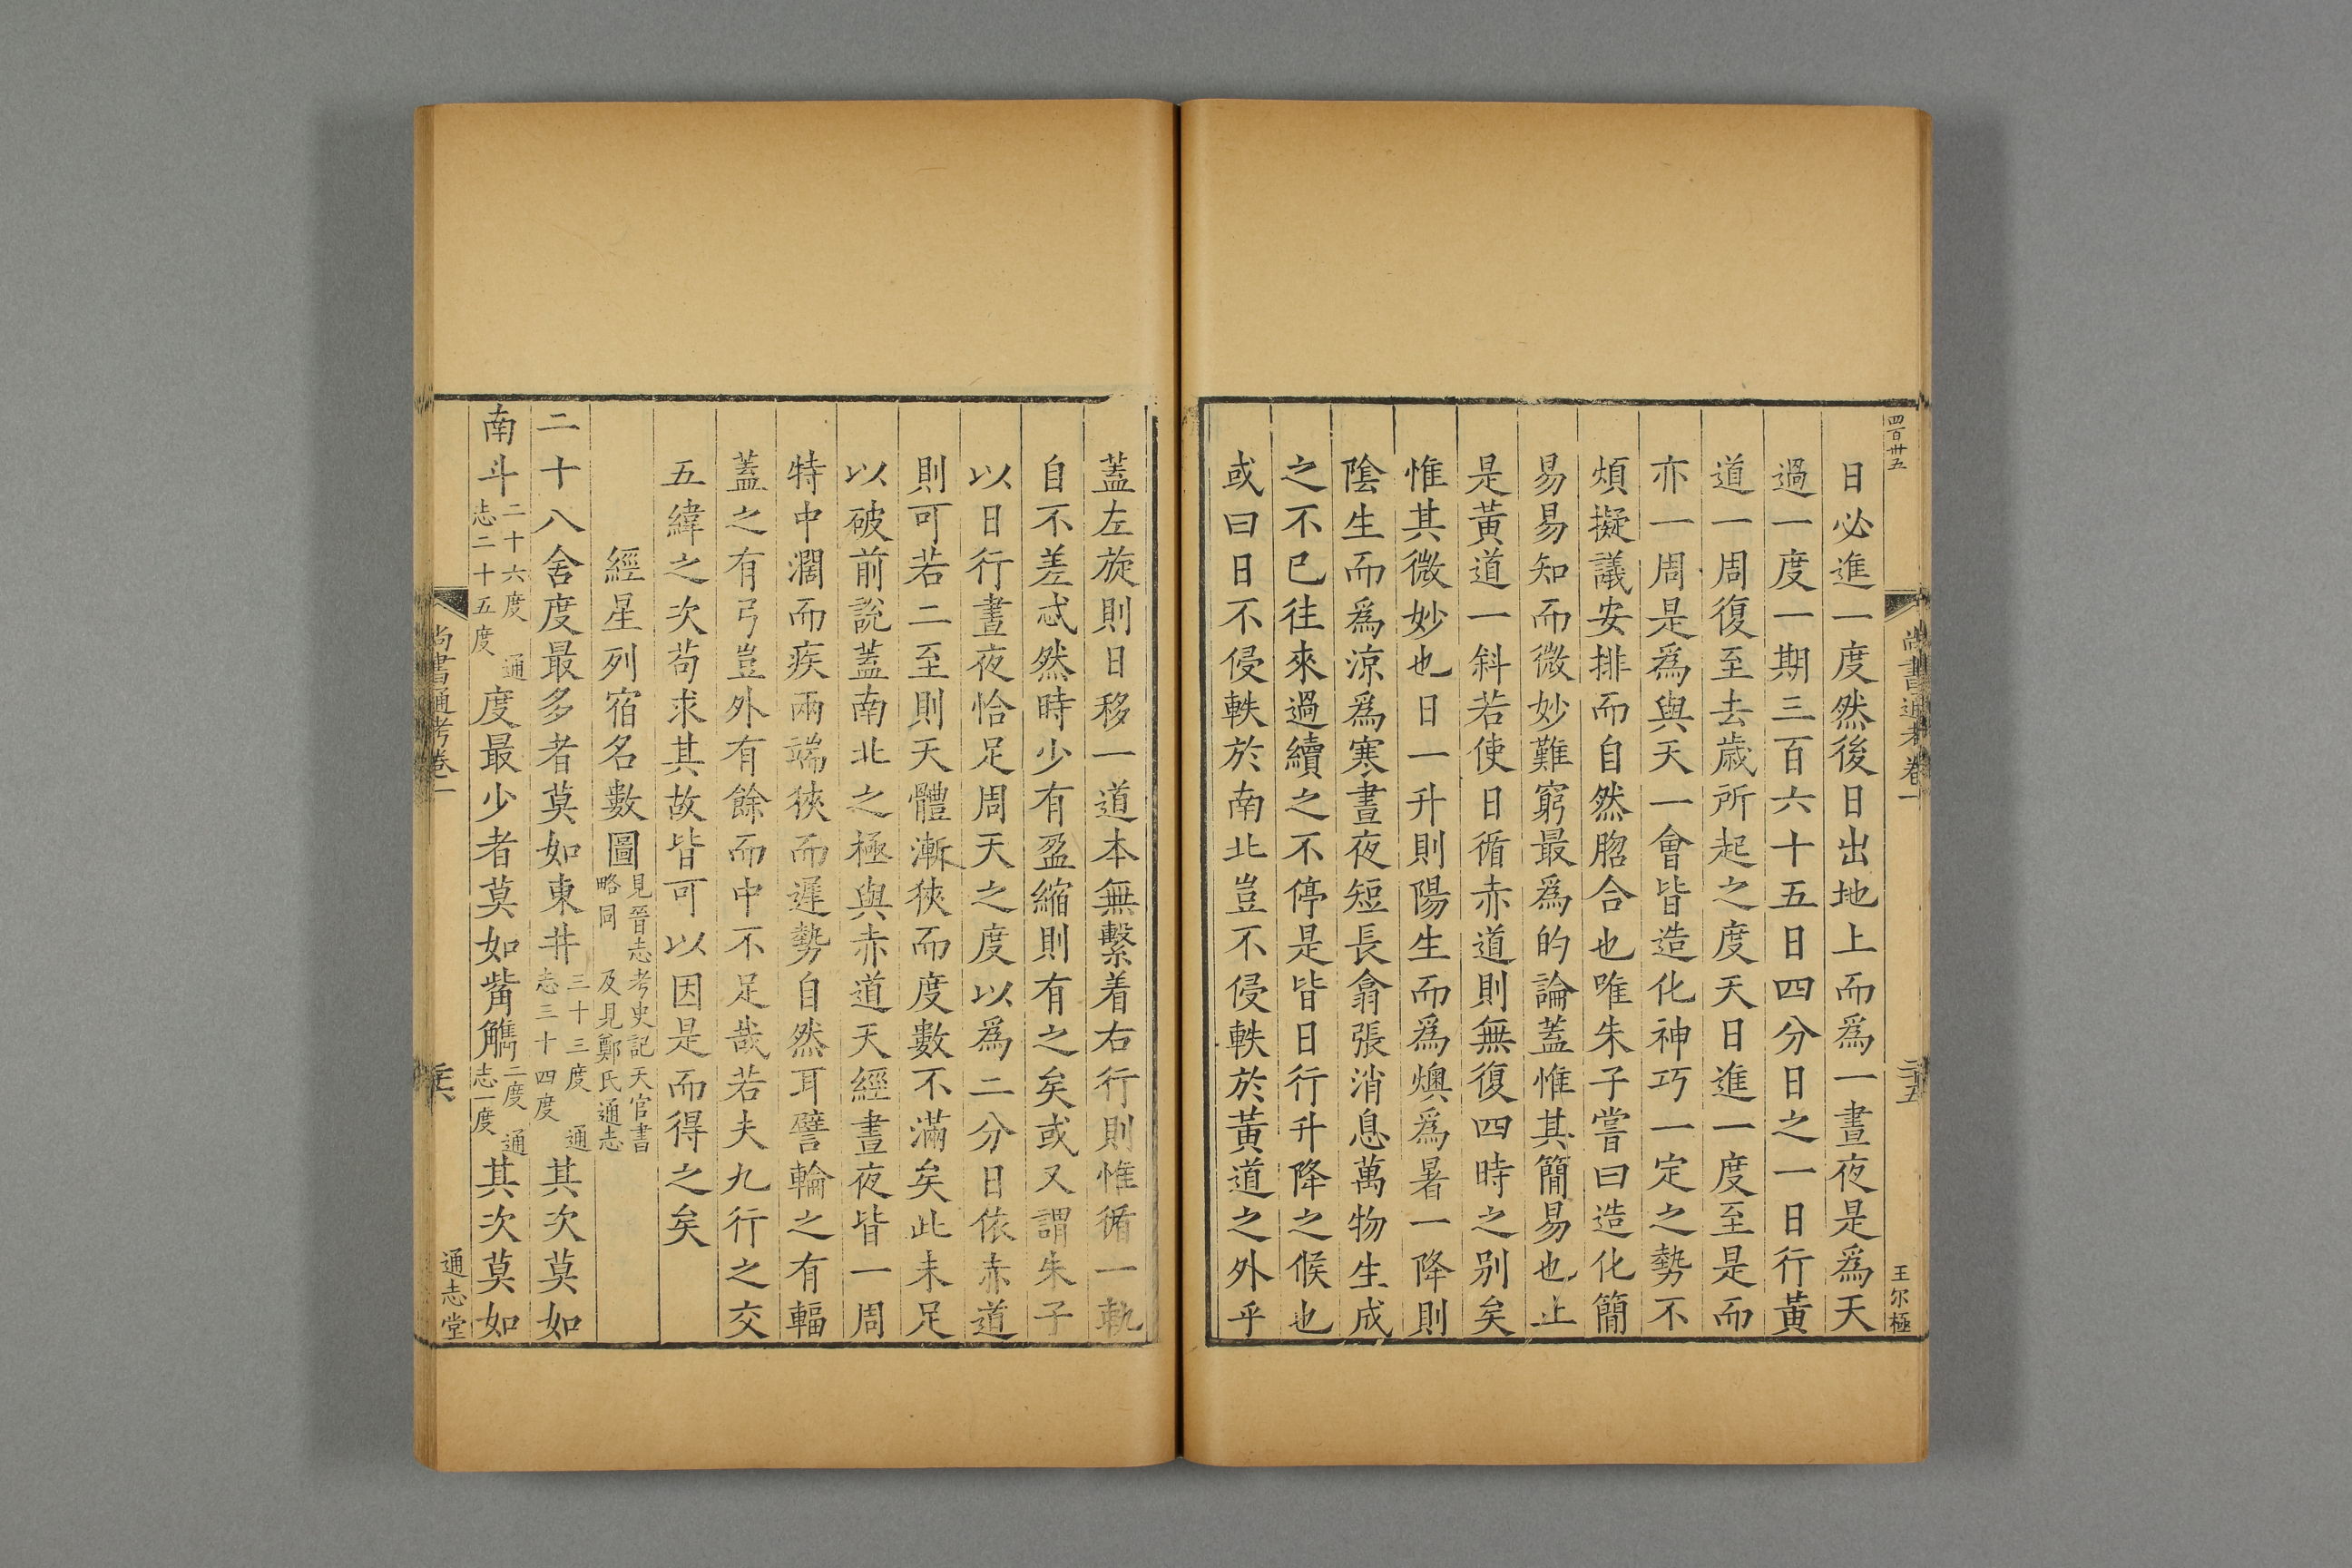 四百卅五
尚書通考卷一
二十五
王尔極
日必進一度然後日出地上而爲一晝夜是爲天
過一度一期三百六十五日四分日之一日行黃
道一周復至去歲所起之度天日進一度至是而
亦一周是爲與天一會皆造化神巧一定之勢不
煩擬議安排而自然脗合也唯朱子嘗曰造化簡
易易知而微妙難窮最爲的論蓋惟其簡易也止
是黃道一斜若使日循赤道則無復四時之別矣
惟其微妙也日一升則陽生而爲燠爲暑一降則
陰生而爲涼爲寒晝夜短長翕張消息萬物生成
之不已往來過續之不停是皆日行升降之候也
或曰日不侵軼於南北豈不侵軼於黃道之外乎
蓋左旋則日移一道本無繫着右行則惟循一軌
自不差忒然時少有盈縮則有之矣或又謂朱子
以日行晝夜恰足周天之度以爲二分日依赤道
則可若二至則天體漸狹而度數不滿矣此未足
以破前說蓋南北之極與赤道天經晝夜皆一周
特中濶而疾兩端狹而遲勢自然耳譬輪之有輻
蓋之有弓豈外有餘而中不足哉若夫九行之交
五緯之次苟求其故皆可以因是而得之矣
經星列宿名數圖見晉志考史記天官書略同及見鄭氏通志
二十八舍度最多者莫如東井三十三度通志三十四度其次莫如
南斗二十六度通志二十五度度最少者莫如觜觿二度通志一度其次莫如
尚書通考卷一
通志堂